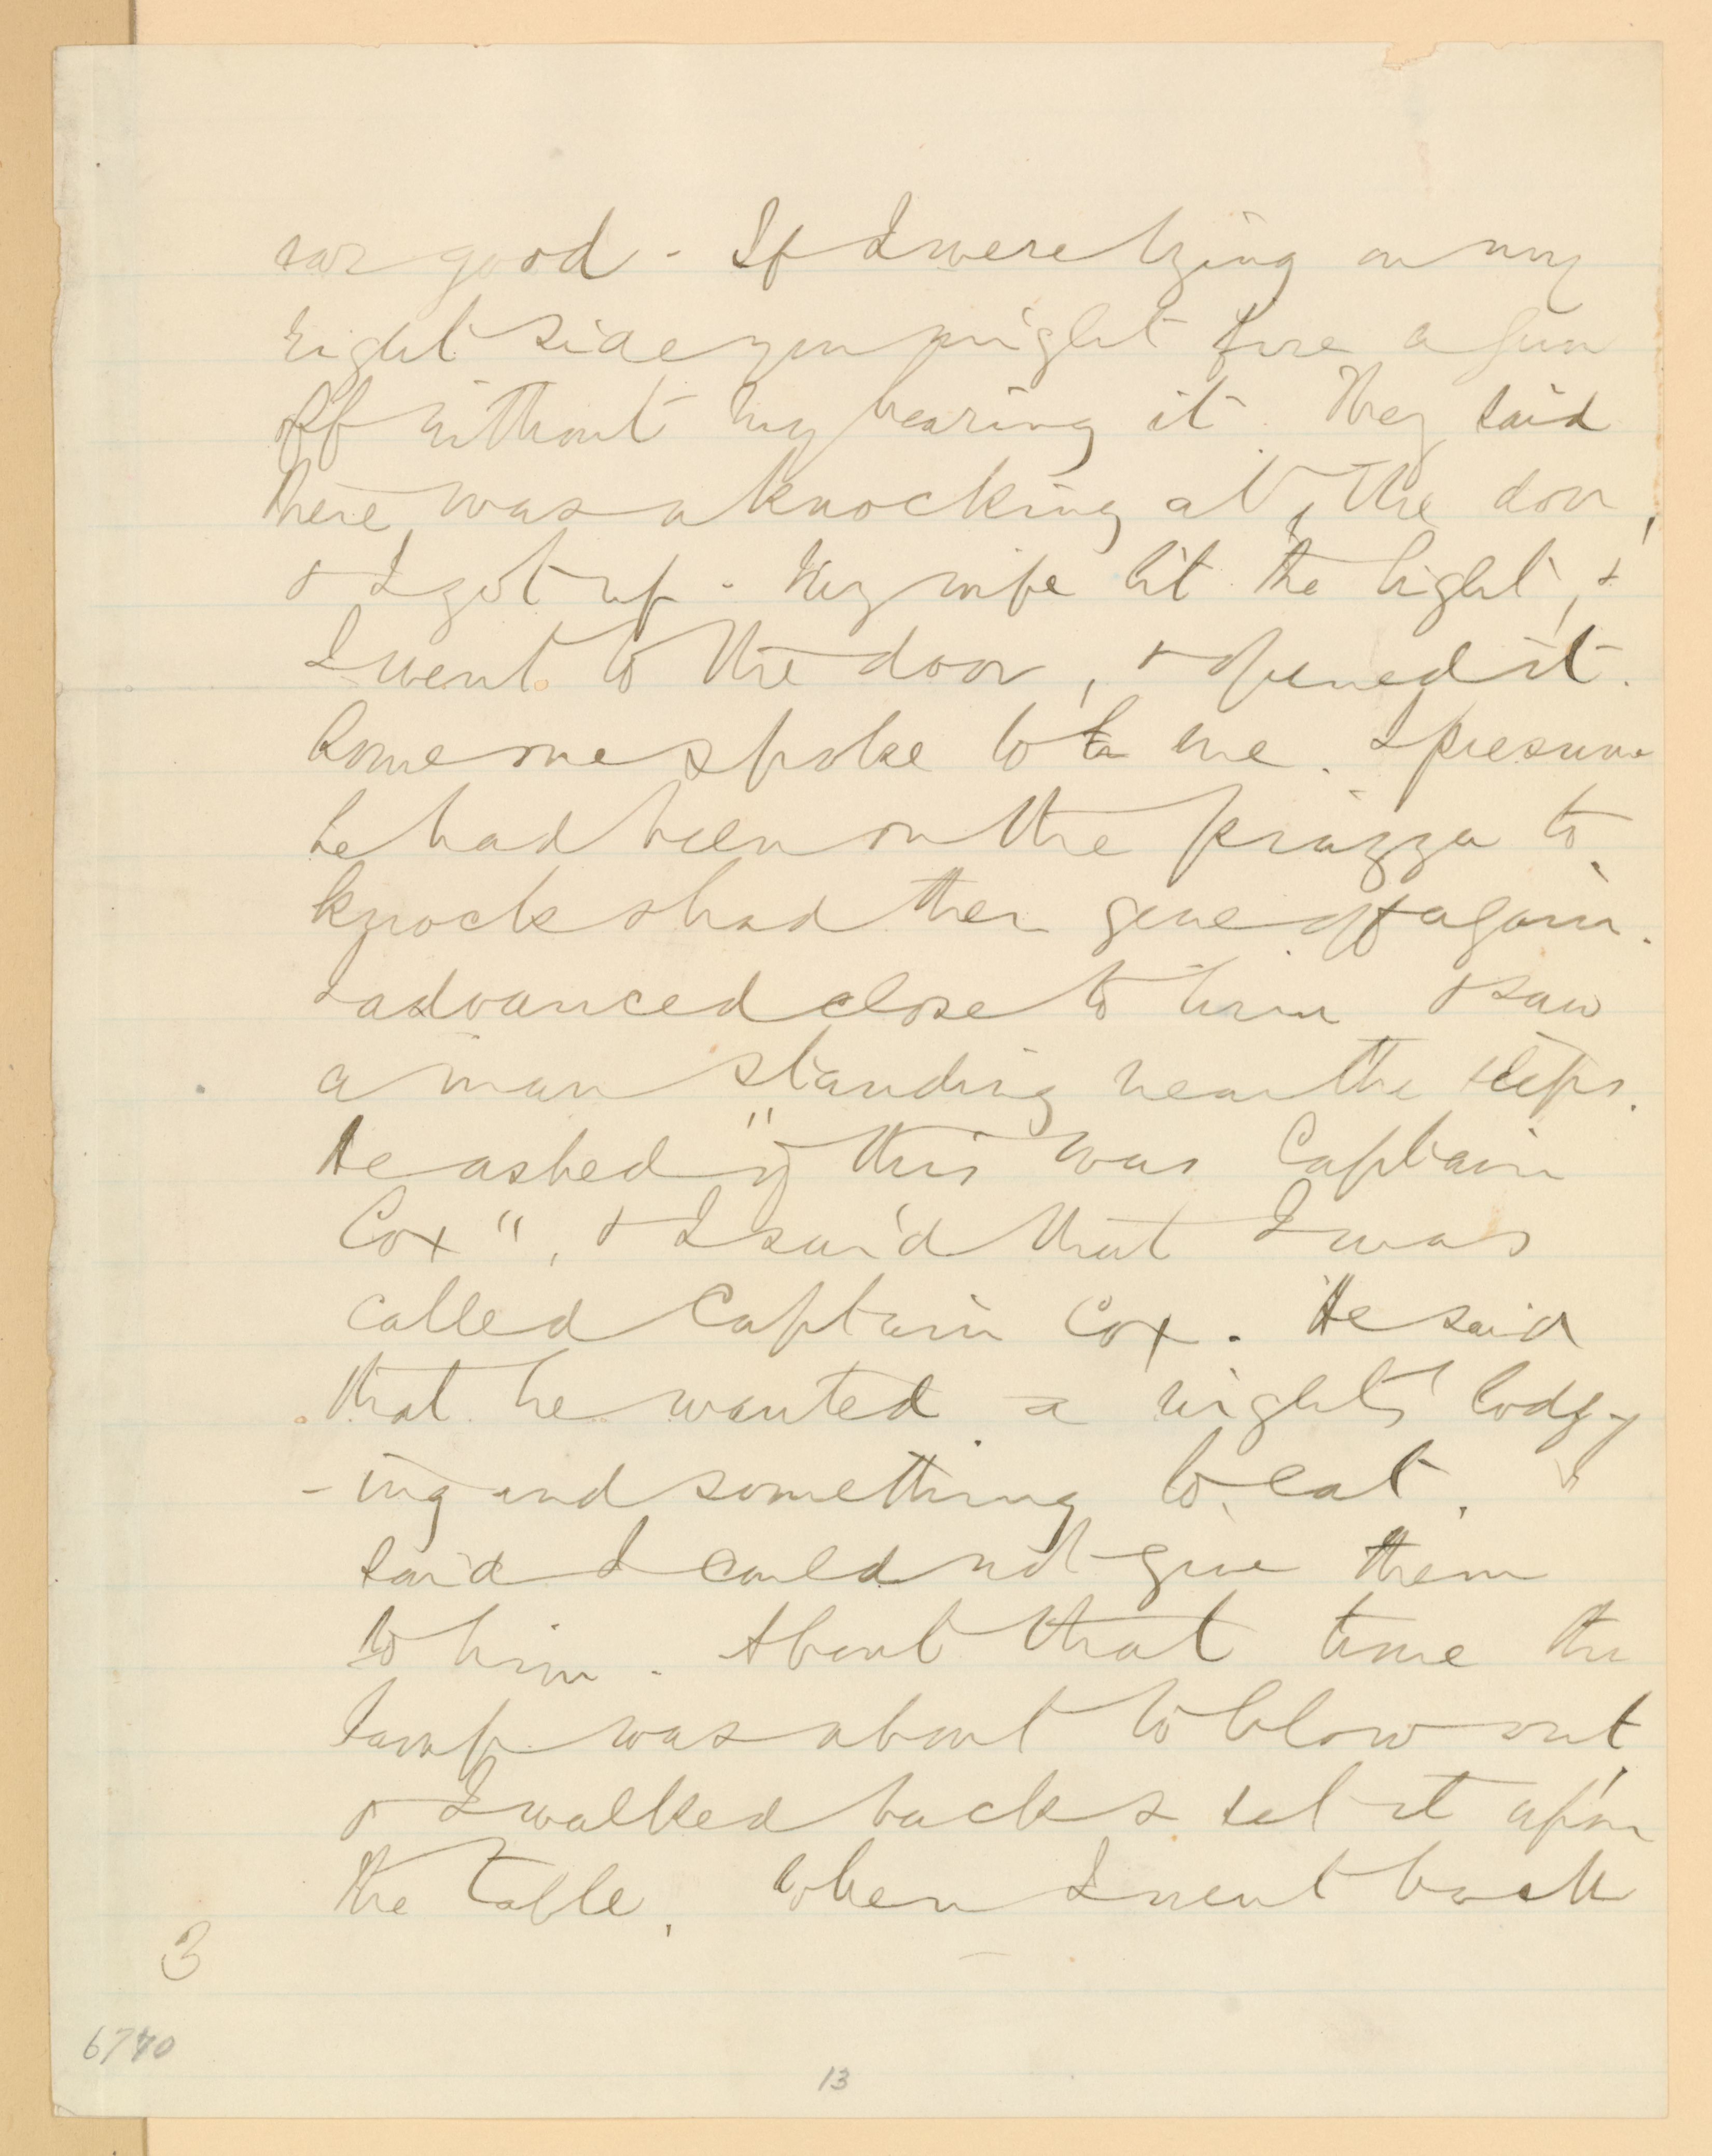 ear good - If I were lying on my
right side you might fire a gun
off without my hearing it. They said
there was a knocking at the door,
& I got up - My wife lit the light, &
I went to the door, & opened it.
Some one spoke to me. I presume
he had been on the piazza to
knock & had then gone off again.
I advanced close to him & saw
a man standing near the steps.
He asked "if this was Captain
Cox", & I said that I was
called Captain Cox. He said
that he wanted a night's lodg-
-ing and something to eat. I
said I could not give them
to him. About that time the
lamp was about to blow out,
& I walked back & set it upon
the table. When I went back
3
6770
13